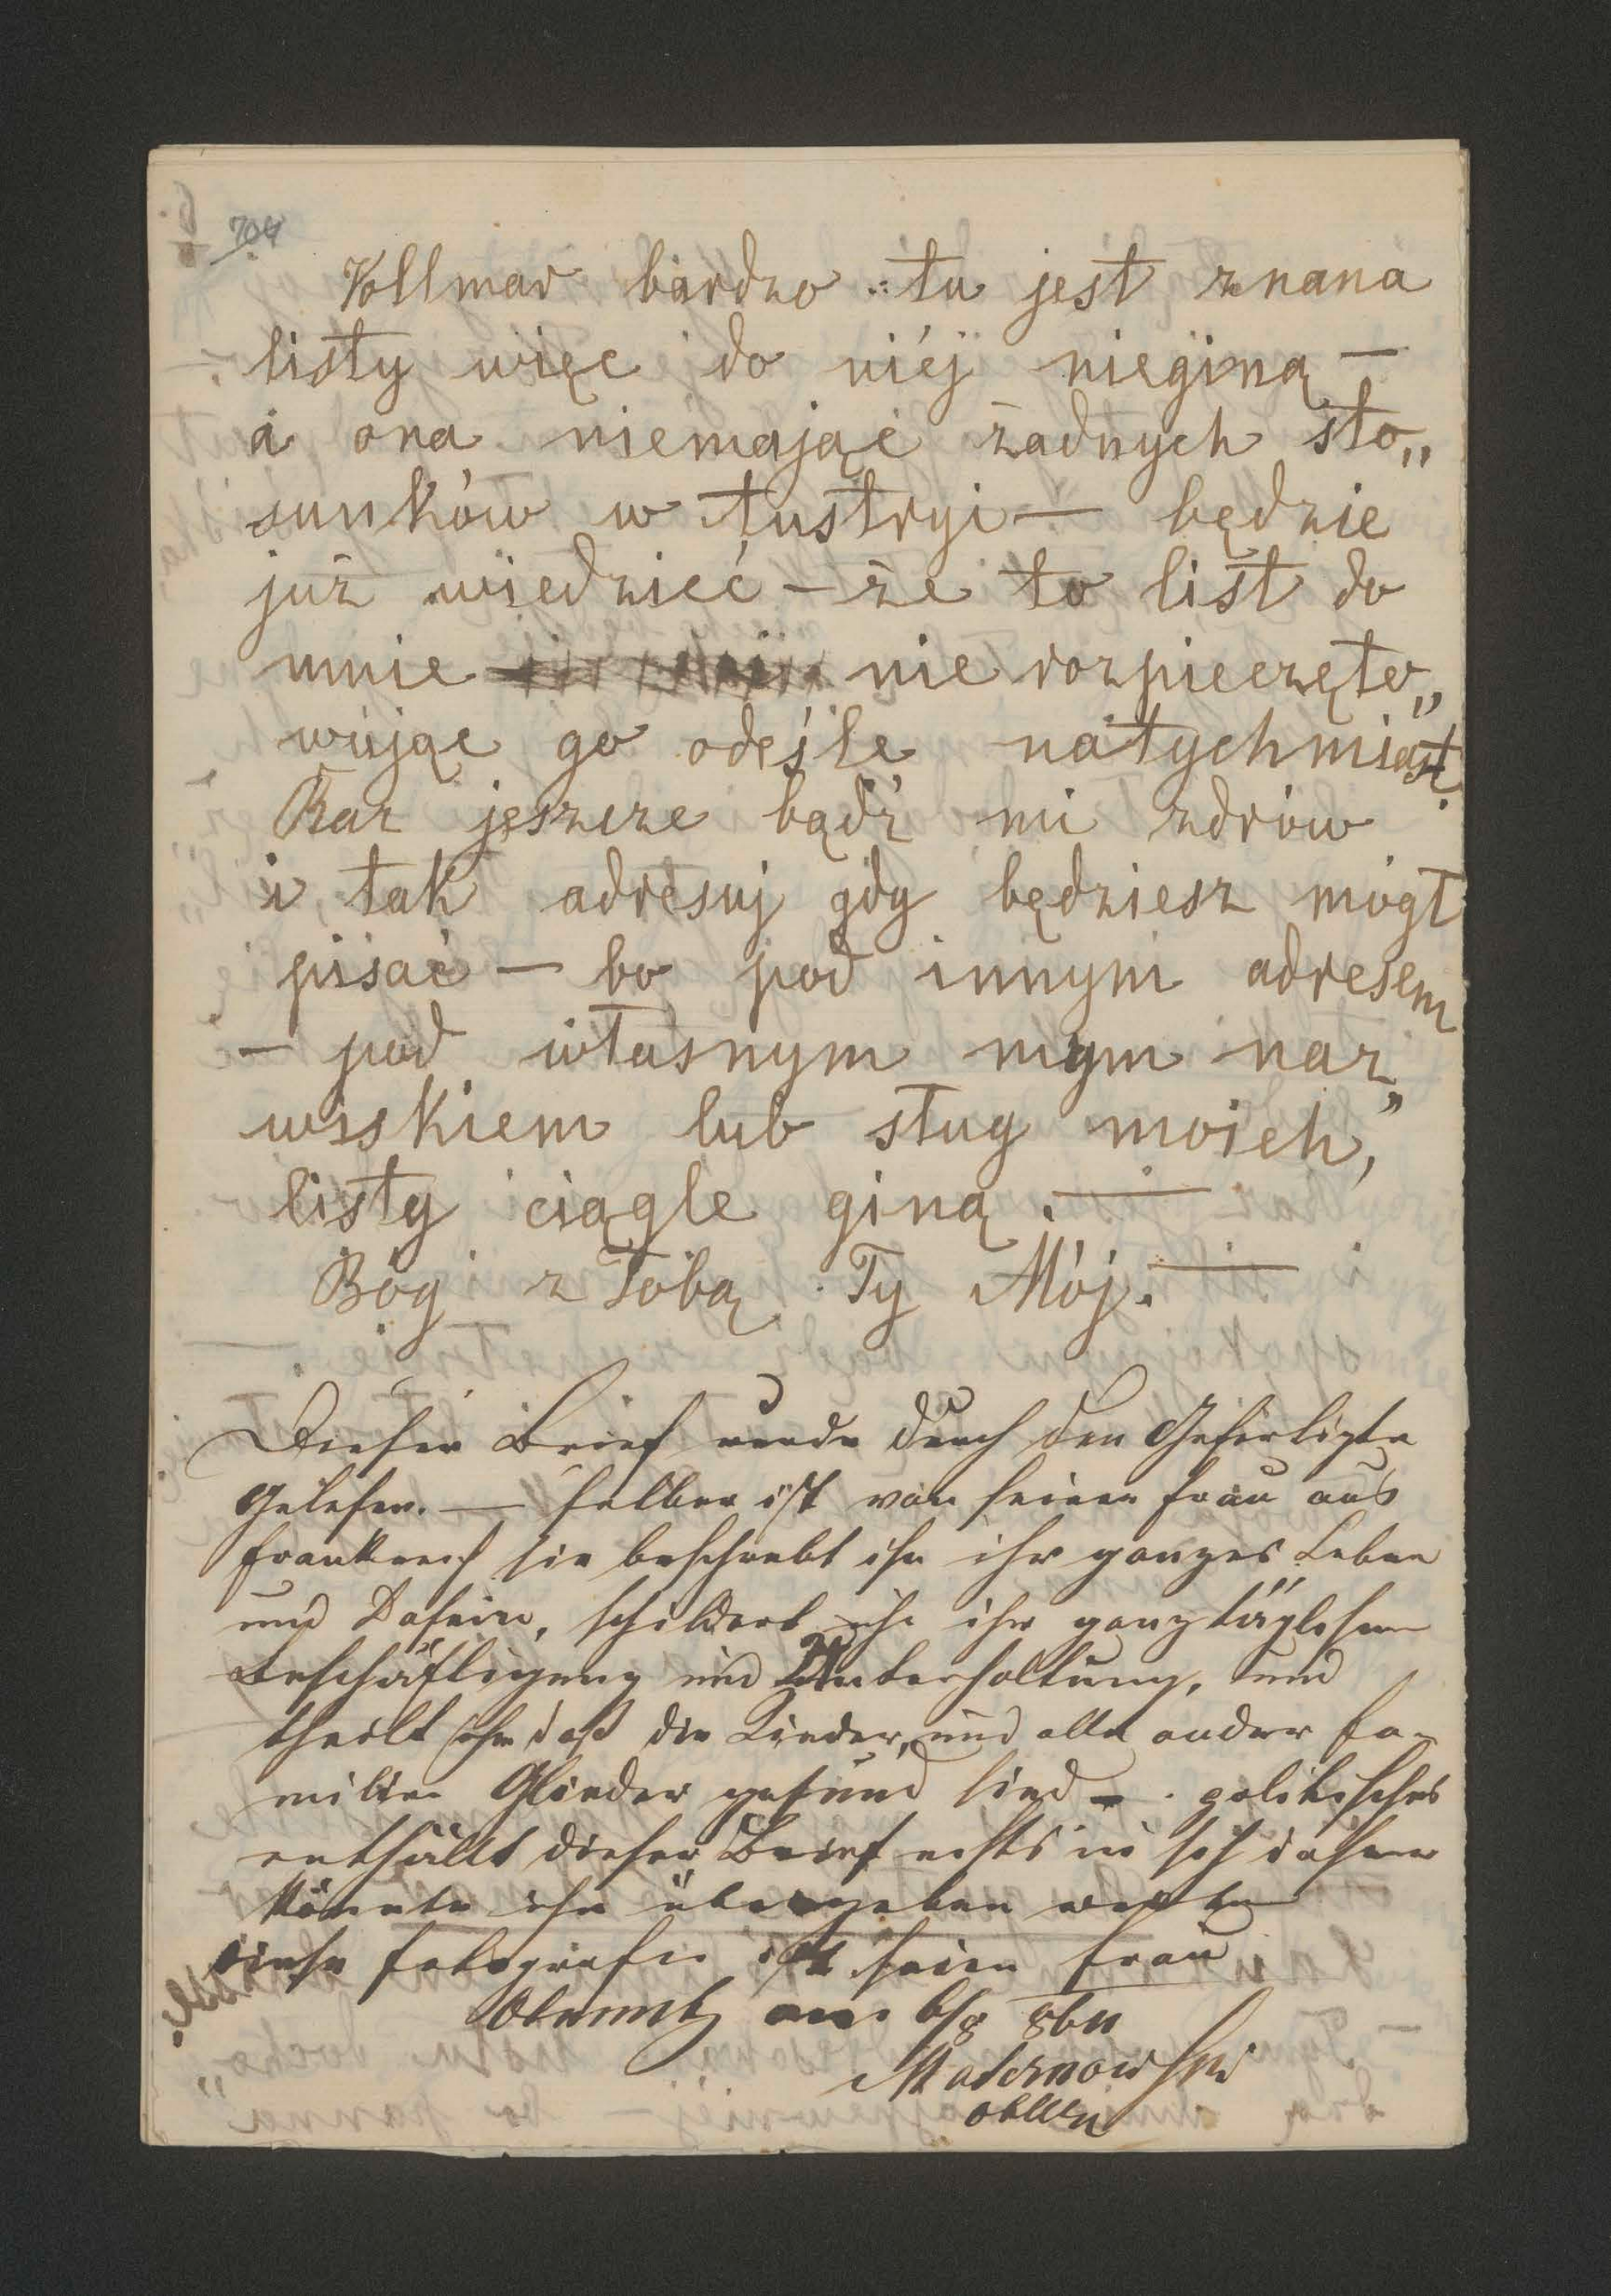 704
Vollmar bardzo tu jest znana
listy więc do niéj niegina̧ —
a ona niemając żadnych sto„
sunków w Austryi — będzie
już wiedzieć — że to list do
mnie nie rozpieczęto„
wując go odeśle natychmiast.
Raz jeszcze bądź mi zdrów
i tak adresuj gdy będziesz mógł
pisać — bo pod innym adresem
— pod własnym mym naz„
wiskiem lub sług moich,
listy ciągle giną. —
Bóg z Tobą Ty Mój. —
Dieser Brief wurde durch den Gefertigte
Gelesen. — selber ist von seiner Frau aus
Frankreich sie beschreibt ihn ihr ganzes Leben
und Dasein, schildert ihr ganz täglichen
Beschäftigung und Unterhaltung, und
theilt ihn daß die Kinder, und alle ander Fa-
milien Glieder gesund sind — . politisches
enthällt dieser Brief nichts in sich daher
könnte ihn übergeben werden
diese Fotografie ist seine Frau
Olmütz am 6/8 864
Maternowski
Obltn